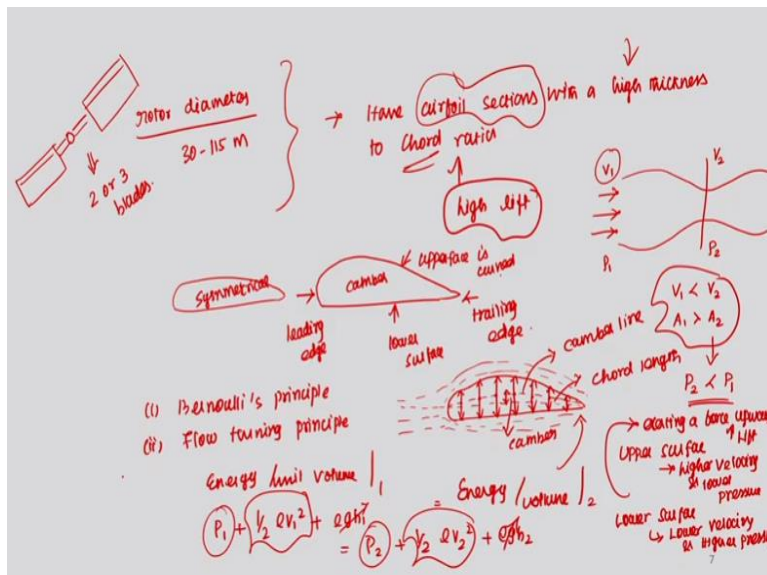 rotor diameter
30-115 m
2 or 3
blades.
→ Have airfoil sections with a high thickness
to chord ratio
high lift
V1
V2
P1
P2
V1 < V2
A1 > A2
P2 < P1
symmetrical
camber
upperface is
curved
leading
edge
lower
surface
trailing
edge.
camber line
chord length
camber
(i) Bernoulli's principle
(ii) Flow turning principle
Energy /unit volume |1
= Energy /volume |2
P1 + 1/2 ρv1² + ρgh1
= P2 + 1/2 ρv2² + ρgh2
→ creating a force upward
lift
Upper surface
→ higher velocity
& lower
pressure
Lower surface
↳ Lower velocity
& higher pressure
7